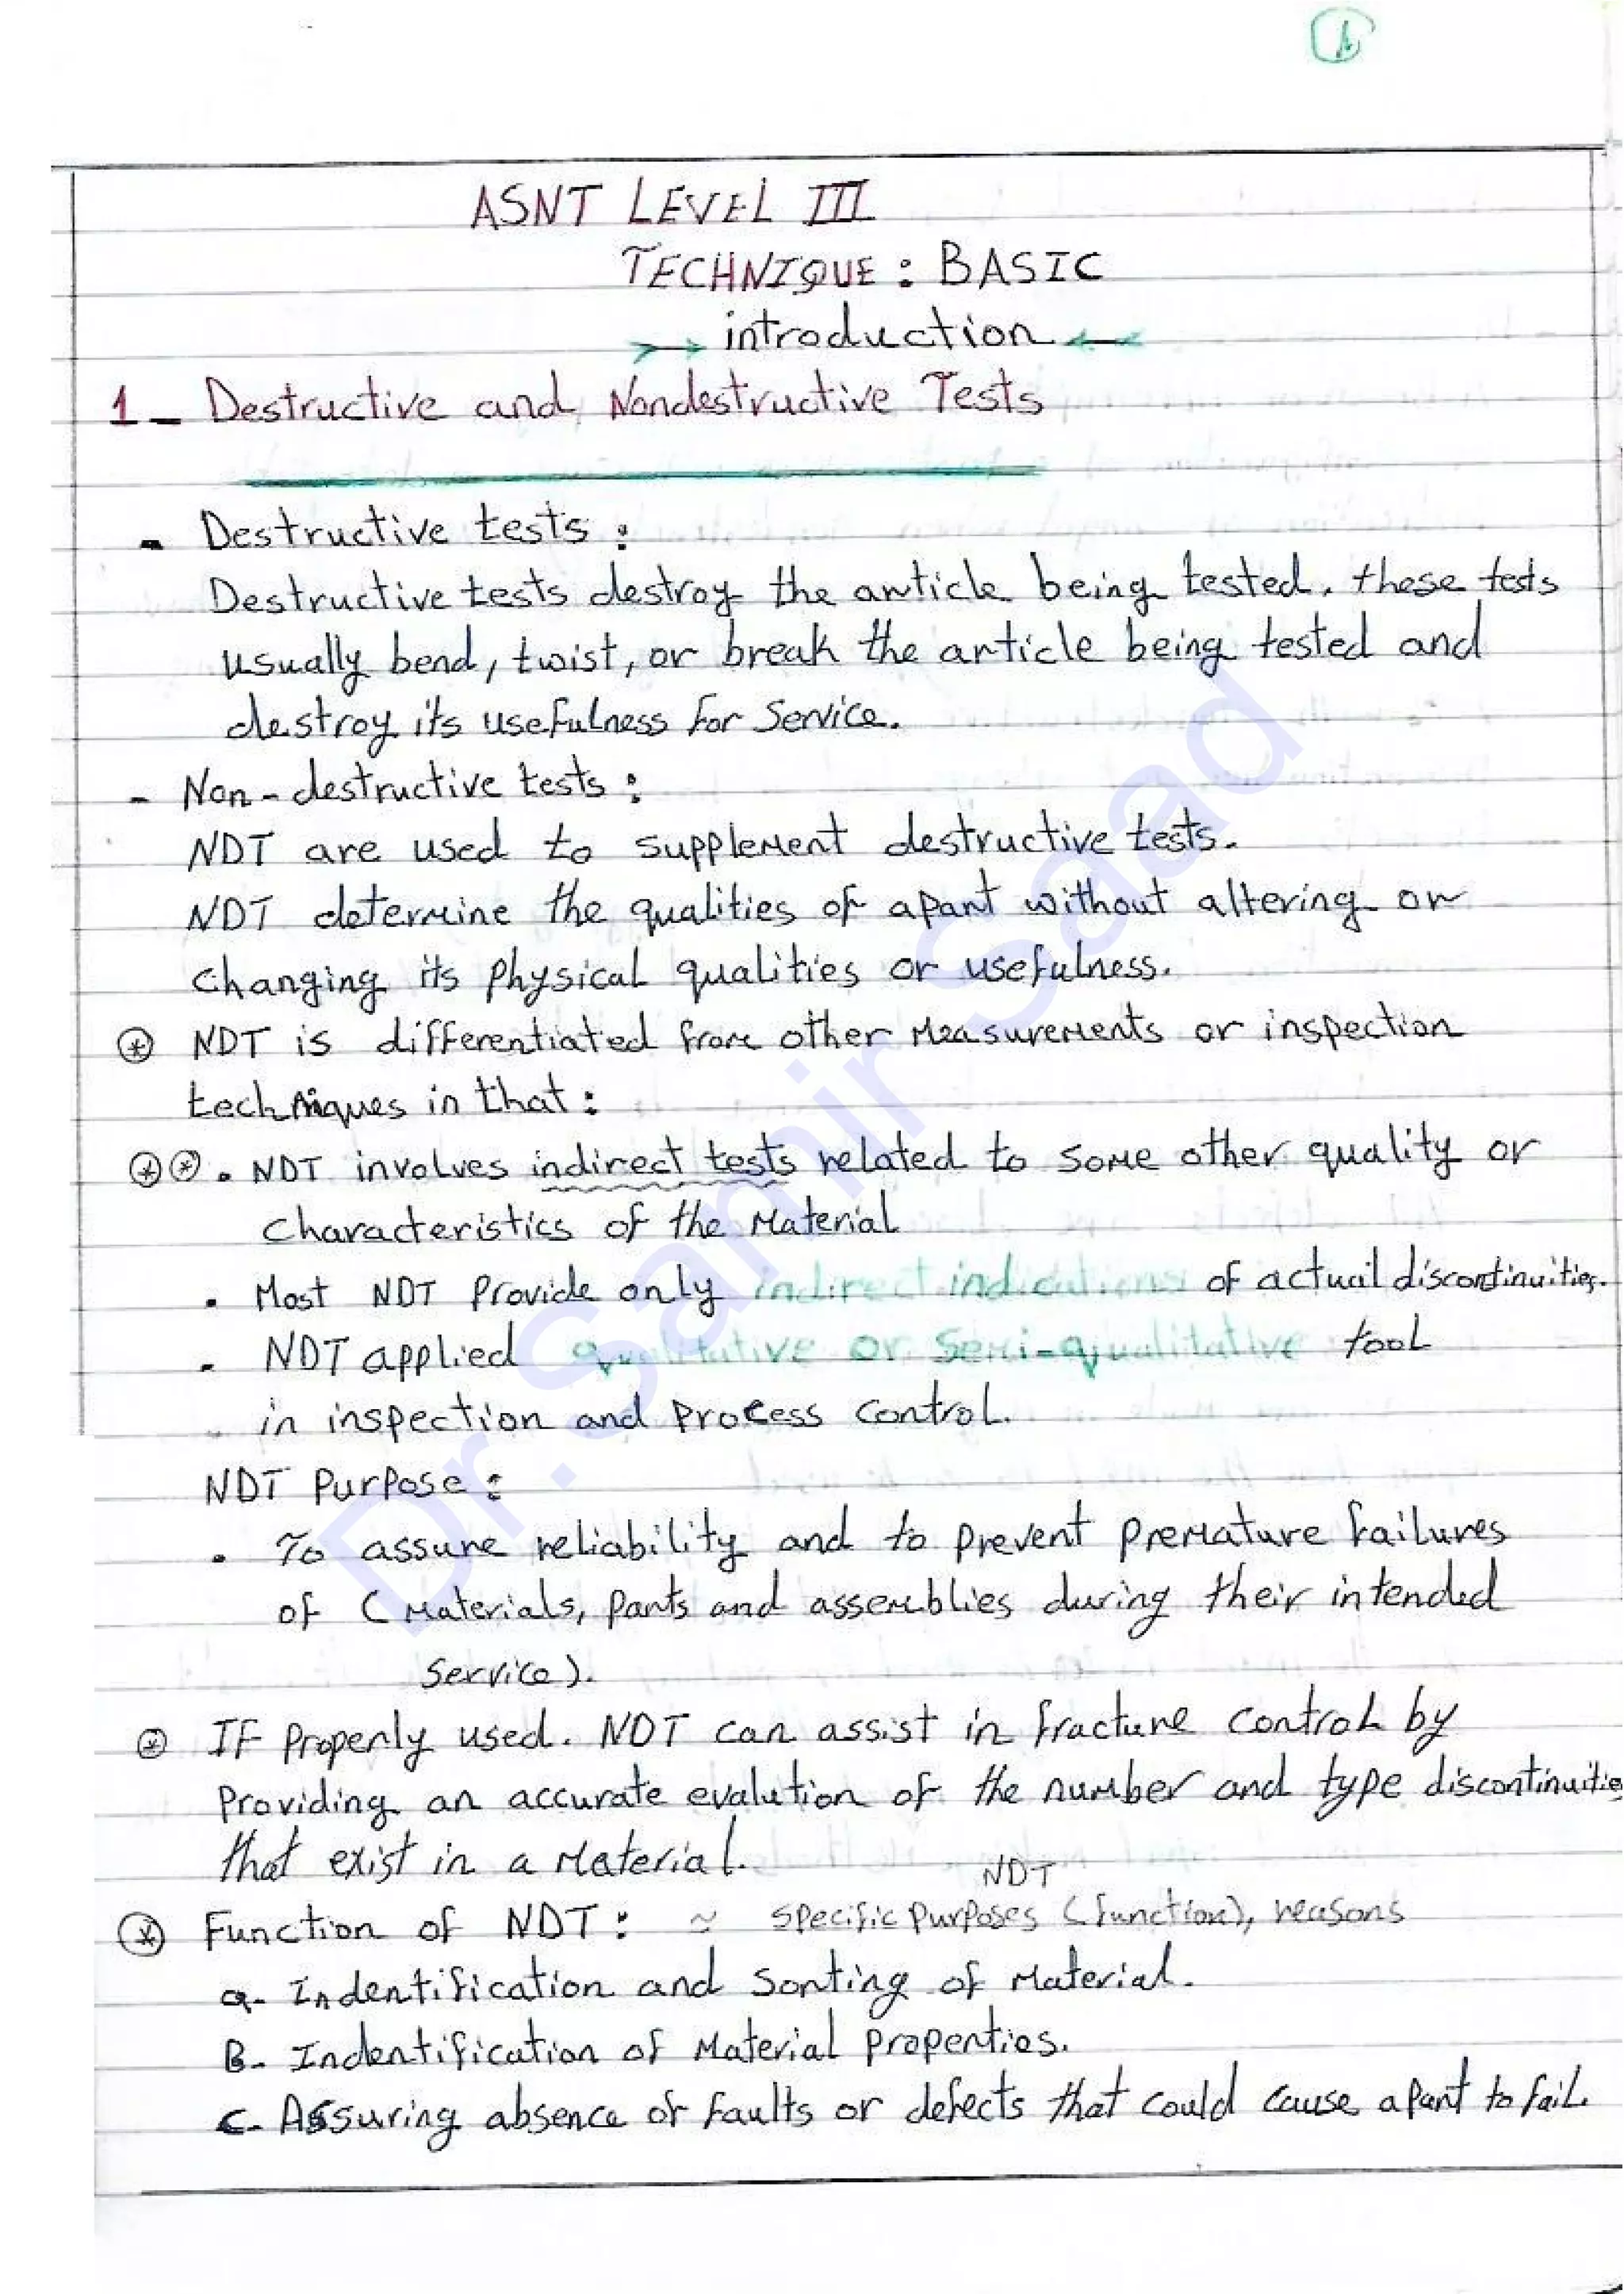 ASNT LEVEL III
TECHNIQUE : BASIC
introduction
1 - Destructive and Nondestructive Tests
- Destructive tests :
Destructive tests destroy the article being tested. these tests
usually bend, twist, or break the article being tested and
destroy its usefulness for service.
- Non-destructive tests :
NDT are used to supplement destructive tests.
NDT determine the qualities of apart without altering or
changing its physical qualities or usefulness.
* NDT is differentiated from other measurements or inspection
techniques in that :
** . NDT involves indirect tests related to some other quality or
characteristics of the material
. Most NDT provide only indirect indications of actual discontinuities.
. NDT applied qualitative or semi-qualitative tool
in inspection and process control.
NDT purpose :
. To assure reliability and to prevent premature failures
of ( materials, parts and assemblies during their intended
service ).
* IF properly used. NDT can assist in fracture control by
providing an accurate evalution of the number and type discontinuitie
that exist in a material.
NDT
* Function of NDT : ≈ specific purposes (function), reasons
a- Indentification and sorting of material.
B- Indentification of material properties.
C- Assuring absence of faults or defects that could cause apart to fail.
Dr.Samir Saad